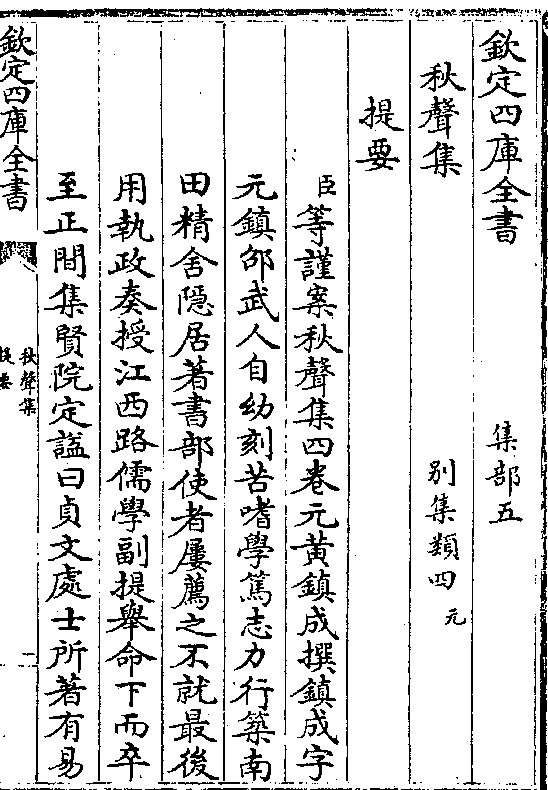 欽定四庫全書　集部五
秋聲集　别集類四元
提要
臣等謹案秋聲集四卷元黄鎮成撰鎮成字
元鎮邵武人自幼刻苦嗜學篤志力行築南
田精舍隱居著書部使者屢薦之不就最後
用執政奏授江西路儒學副提舉命下而卒
至正間集賢院定諡曰貞文處士所著有易
欽定四庫全書
秋聲集
提要
一